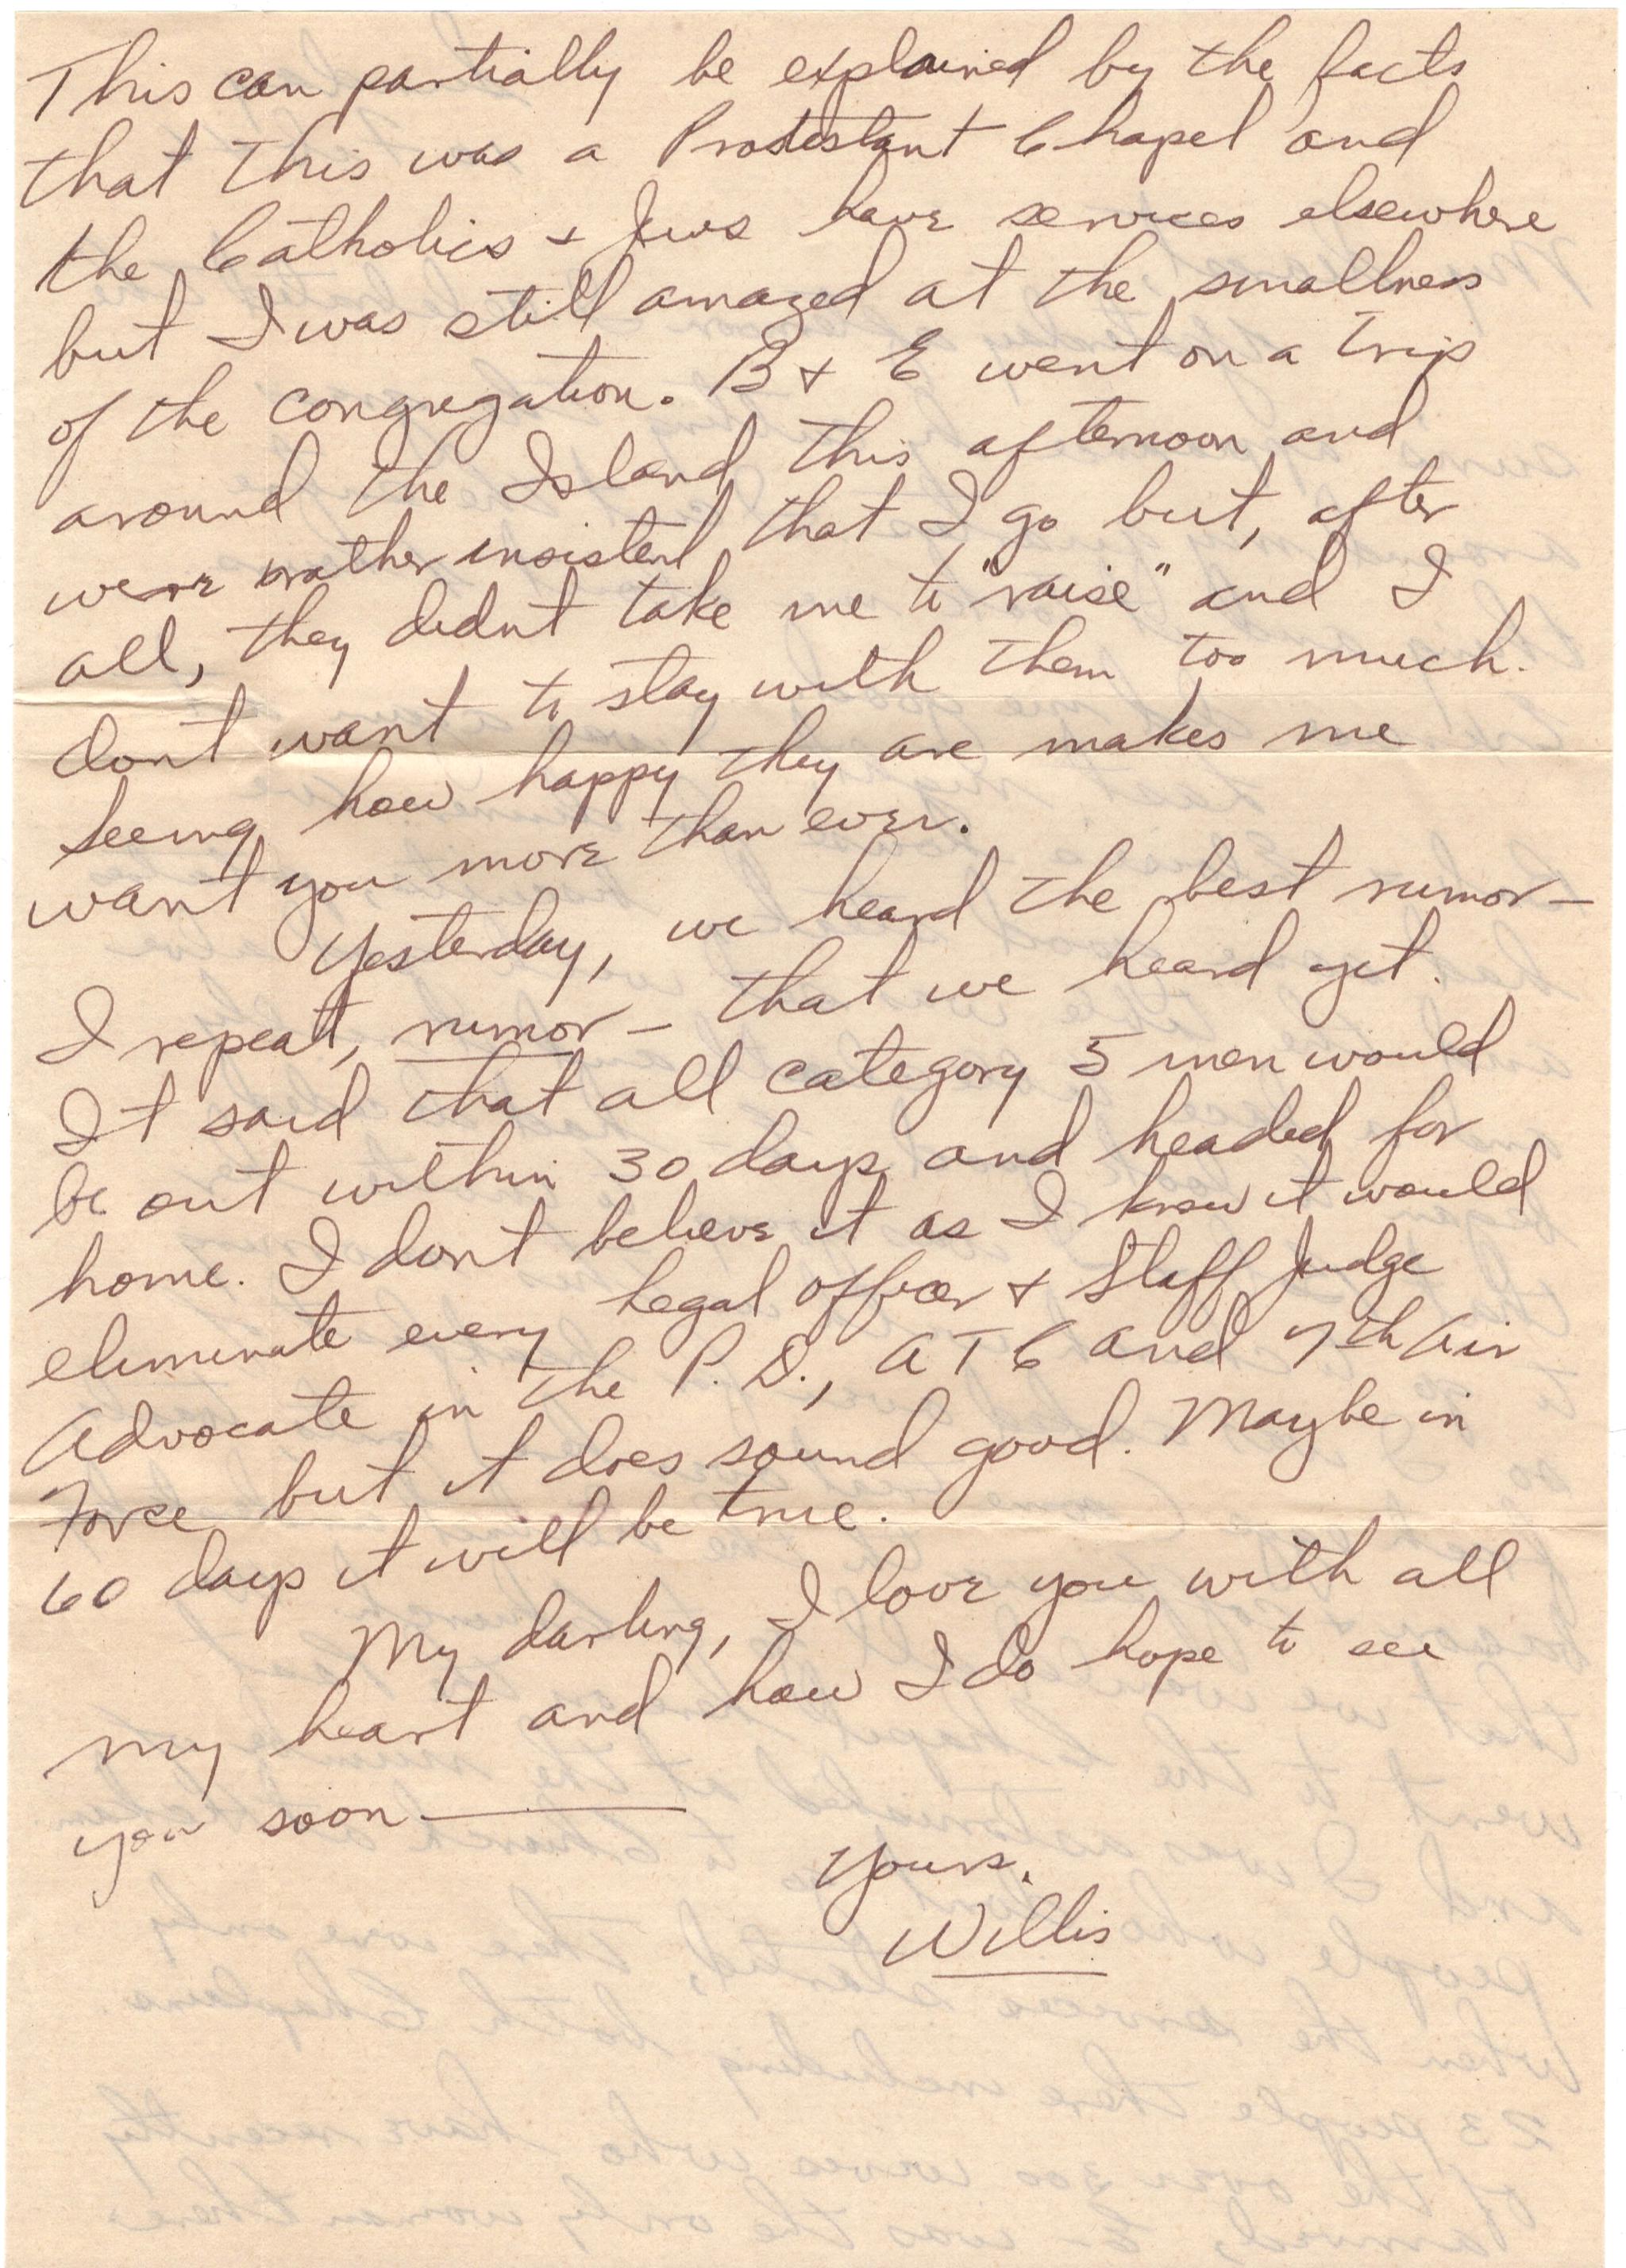 This can partially be explained by the facts
that this was a Protestant Chapel and
the Catholics + Jews have services elsewhere
but I was still amazed at the smallness
of the congregation. B + E went on a trip
around the Island this afternoon and
were rather insistent that I go but, after
all, they didnt take me to "raise" and I
dont want to stay with them too much.
Seeing how happy they are makes me
want you more than ever.
Yesterday, we heard the best rumor —
I repeat, rumor — that we heard yet.
It said that all category 5 men would
be out within 30 days and headed for
home. I dont believe it as I know it would
eliminate every legal officer + Staff Judge
Advocate in the P.D., ATC and 7th Air
Force but it does sound good. Maybe in
60 days it will be true.
My darling, I love you with all
my heart and how I do hope to see
you soon —
Yours,
Willis